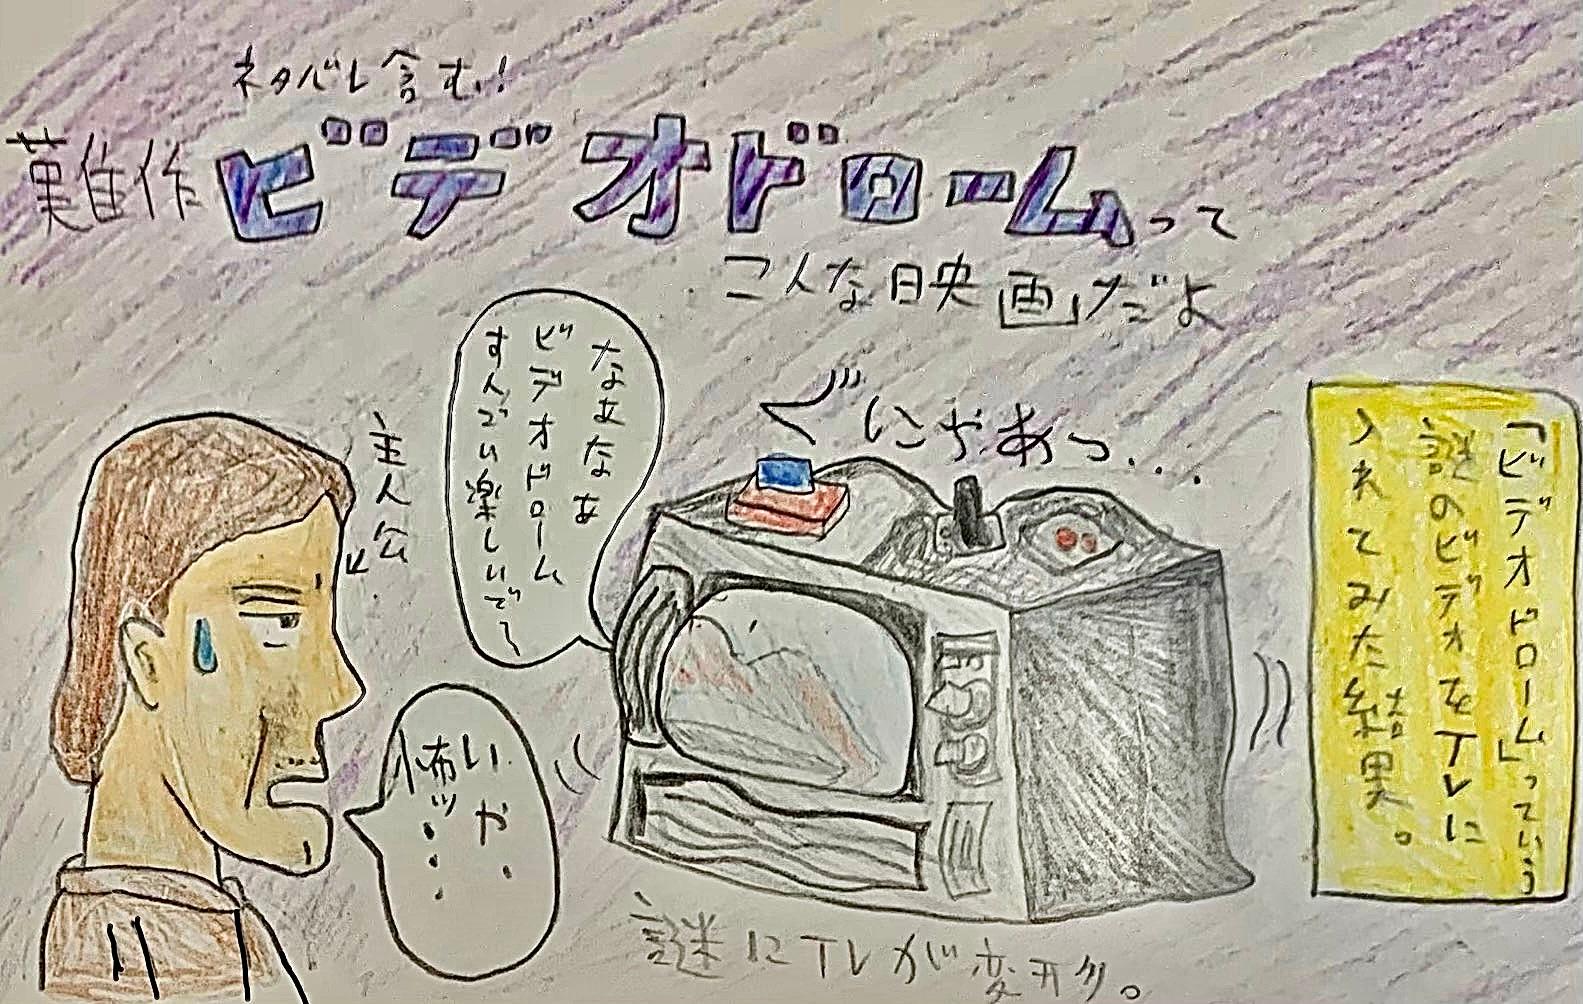 ネタバレ含む!
難作
ビデオドロームって
こんな映画だよ
「ビデオドローム」っていう
謎のビデオをTVに
入れてみた結果。
ぐにゃあっ...
なあなあ
ビデオドローム
すんごい楽しいで〜
主人公
いや、
怖ッ…
謎にTVが変形。